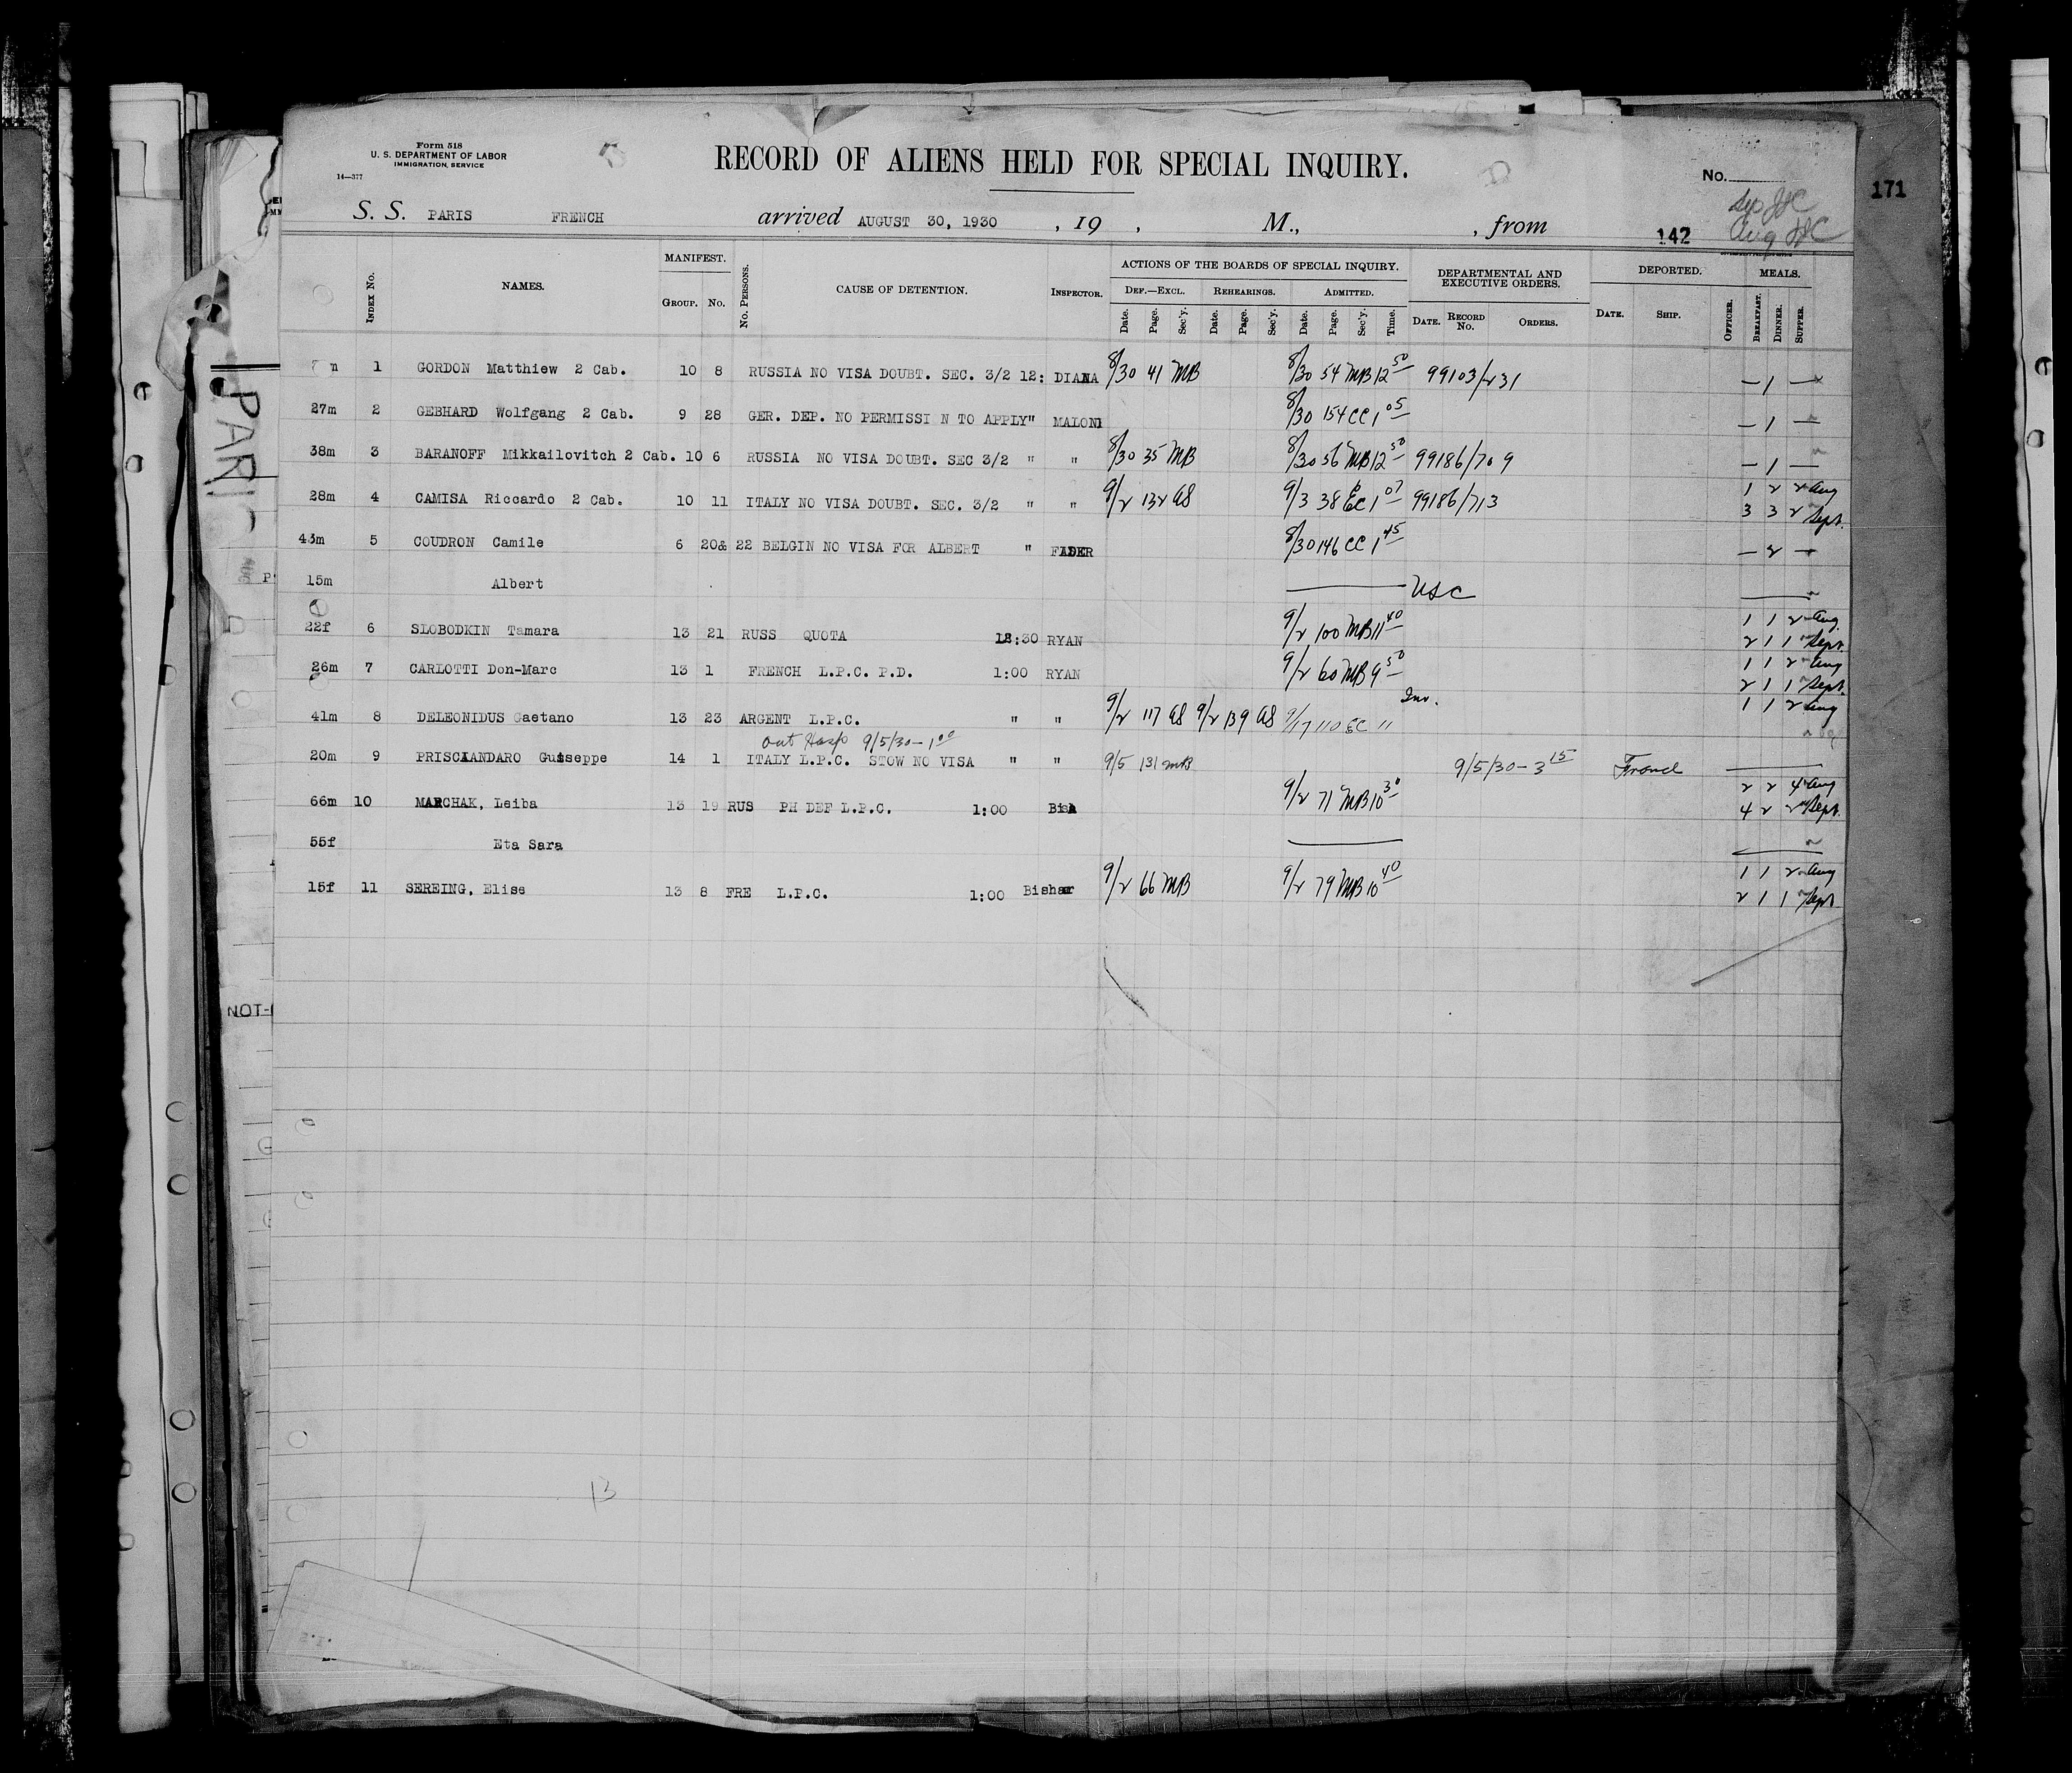 Form 518
U. S. DEPARTMENT OF LABOR
IMMIGRATION SERVICE
14—377
RECORD OF ALIENS HELD FOR SPECIAL INQUIRY.
No.
171
S. S. PARIS FRENCH arrived AUGUST 30, 1930 , 19 , M., , from
142
Index No. NAMES. MANIFEST. Group. No. No. Persons. CAUSE OF DETENTION. Inspector. ACTIONS OF THE BOARDS OF SPECIAL INQUIRY. DEPARTMENTAL AND EXECUTIVE ORDERS. DEPORTED. MEALS.
Def.—Excl. Rehearings. Admitted.
Date. Page. Sec'y. Date. Page. Sec'y. Date. Page. Sec'y. Time. Date. Record No. Orders. Date. Ship. Officer. Breakfast. Dinner. Supper.
m 1 GORDON Matthiew 2 Cab. 10 8 RUSSIA NO VISA DOUBT. SEC. 3/2 12: DIANA 8/30 41 MB 8/30 54 MB 12 50 99103/231 — 1 —
27m 2 GEBHARD Wolfgang 2 Cab. 9 28 GER. DEP. NO PERMISSI N TO APPLY " MALONE 8/30 154 CC 1 05 — 1 —
38m 3 BARANOFF Mikkailovitch 2 Cab. 10 6 RUSSIA NO VISA DOUBT. SEC 3/2 " " 8/30 35 MB 8/30 56 MB 12 50 99186/709 — 1 —
28m 4 CAMISA Riccardo 2 Cab. 10 11 ITALY NO VISA DOUBT. SEC. 3/2 " " 9/2 132 AS 9/3 38 EC 1 07 99186/713 1 2 2 Aug
3 3 2 Sept.
43m 5 COUDRON Camile 6 20& 22 BELGIN NO VISA FOR ALBERT " FADER 8/30 146 CC 1 45 — 2 —
15m Albert —— USC ——
22f 6 SLOBODKIN Tamara 13 21 RUSS QUOTA 12:30 RYAN 9/2 100 MB 11 40 1 1 2 Aug.
2 1 1 Sept.
26m 7 CARLOTTI Don-Marc 13 1 FRENCH L.P.C. P.D. 1:00 RYAN 9/2 60 MB 9 50 1 1 2 Aug
2 1 1 Sept.
41m 8 DELEONIDUS Gaetano 13 23 ARGENT L.P.C. " " 9/2 117 AS 9/2 139 AS 9/17 110 EC 11 Inv. 1 1 2 Aug
out Hosp 9/5/30—1 00
20m 9 PRISCIANDARO Guiseppe 14 1 ITALY L.P.C. STOW NO VISA " " 9/5 131 MB 9/5/30—3 15 ——
66m 10 MARCHAK, Leiba 13 19 RUS PH DEF L.P.C. 1:00 Bish 9/2 71 MB 10 30 2 2 4 Aug
4 2 2 Sept.
55f Eta Sara —— ——
15f 11 SEREING, Elise 13 8 FRE L.P.C. 1:00 Bishar 9/2 66 MB 9/2 79 MB 10 40 1 1 2 Aug
2 1 1 Sept
PARI
NOT-
13